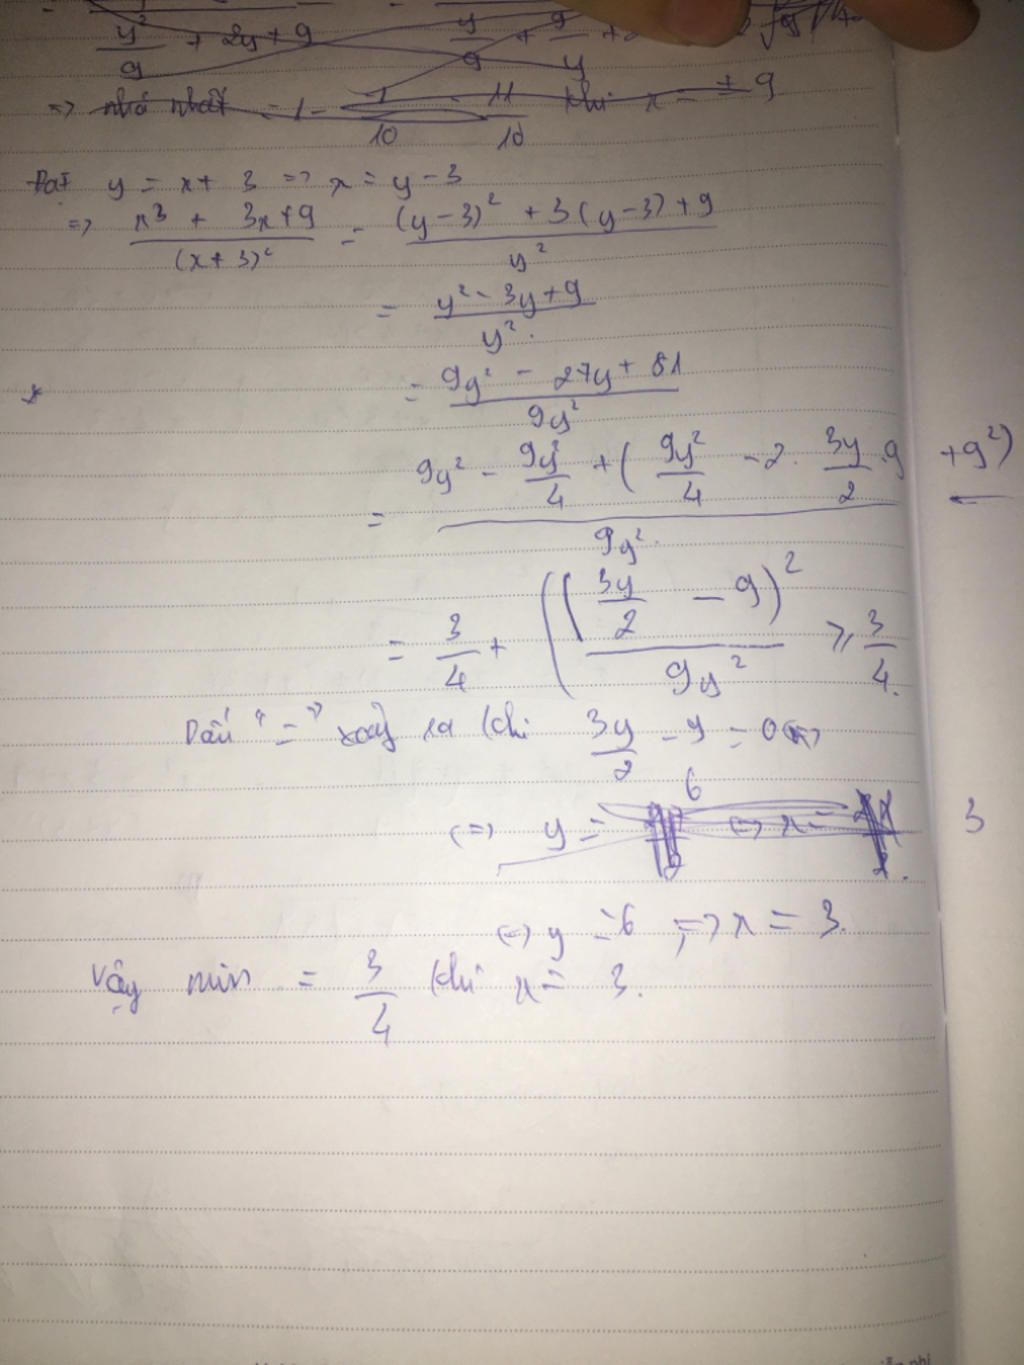 y²/9 + 2y + 9 y/9 + 9/y
=> nhỏ nhất = 1 - 1/10 11/10 khi x = ± 9
Đặt y = x + 3 => x = y - 3
=> (x³ + 3x + 9)/(x + 3)² = ((y - 3)² + 3(y - 3) + 9)/y²
= (y² - 3y + 9)/y².
= (9y² - 27y + 81)/9y²
= (9y² - 9y²/4 + (9y²/4 - 2. 3y/2 .9 + 9²))/9y².
= 3/4 + ((3y/2 - 9)²/9y² ≥ 3/4.
Dấu "=" xảy ra khi 3y/2 - 9 = 0 <=>
<=> y = 6 <=> x = 3
<=> y = 6 => x = 3.
Vậy min = 3/4 khi x = 3.